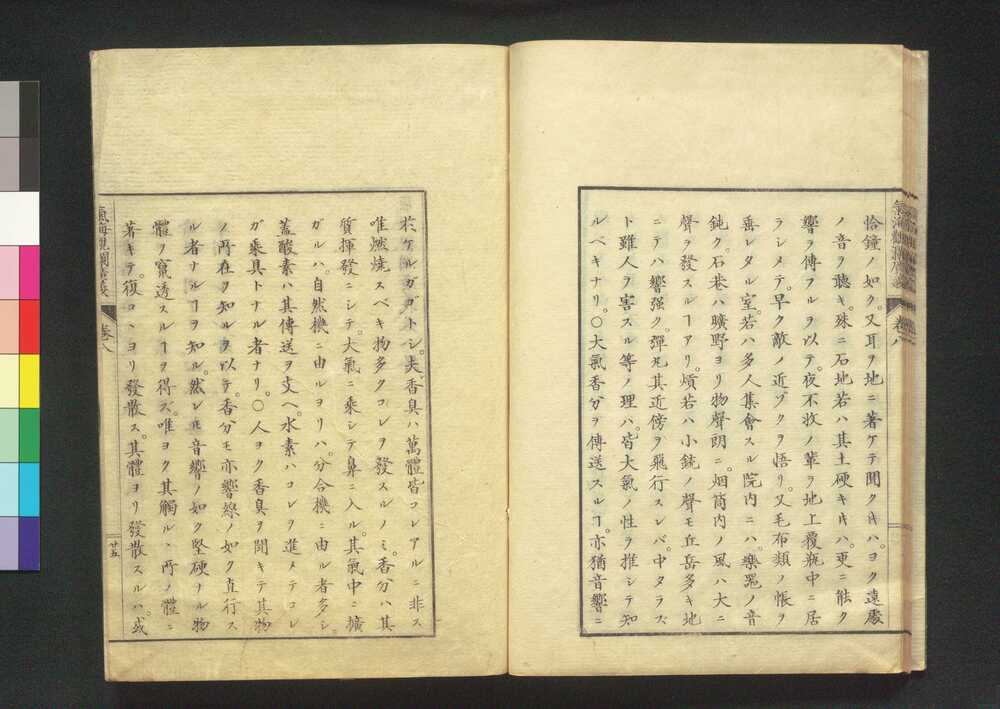 恰鐘ノ如ク。又耳ヲ地ニ著ケテ聞クキハ。ヨク遠處
ノ音ヲ聽キ。殊ニ石地若ハ其土硬キキハ。更ニ能ク
響ヲ傳フルヲ以テ。夜不收ノ輩ヲ地上覆瓶中ニ居
ラシメテ。早ク敵ノ近ヅクヲ悟リ。又毛布類ノ帳ヲ
垂レタル室。若ハ多人集會スル院内ニハ。樂器ノ音
鈍ク。石巷ハ曠野ヨリ物聲朗ニ。烟筒内ノ風ハ大ニ
聲ヲ發スルヿアリ。煩若ハ小銃ノ聲モ丘岳多キ地
ニテハ響强ク。彈丸其近傍ヲ飛行スレバ。中タラズ
ト雖人ヲ害スル等ノ理ハ。皆大氣ノ性ヲ推シテ知
ルベキナリ。〇大氣香分ヲ傳送スルヿ。亦猶音響ニ
於ケルガゴトシ。夫香臭ハ萬體皆コレアルニ非ス
唯燃燒スベキ物多クコレヲ發スルノミ。香分ハ其
質揮發ニシテ。大氣ニ乘シテ鼻ニ入ル。其氣中ニ擴
ガルハ。自然機ニ由ルヨリハ。分合機ニ由ル者多シ。
蓋酸素ハ其傳送ヲ支ヘ。水素ハコレヲ進メテコレ
ガ乘具トナル者ナリ。〇人ヨク香臭ヲ聞キテ其物
ノ所在ヲ知ルヲ以テ。香分モ亦響線ノ如ク直行ス
ル者ナルヿヲ知ル。然レ𪜈音響ノ如ク堅硬ナル物
體ヲ竄透スルヿヲ得ズ。唯ヨク其觸ルヽ所ノ體ニ
著キテ。復コヽヨリ發散ス。其體ヨリ發散スルハ。或
氣海觀瀾廣義
卷八
廿五